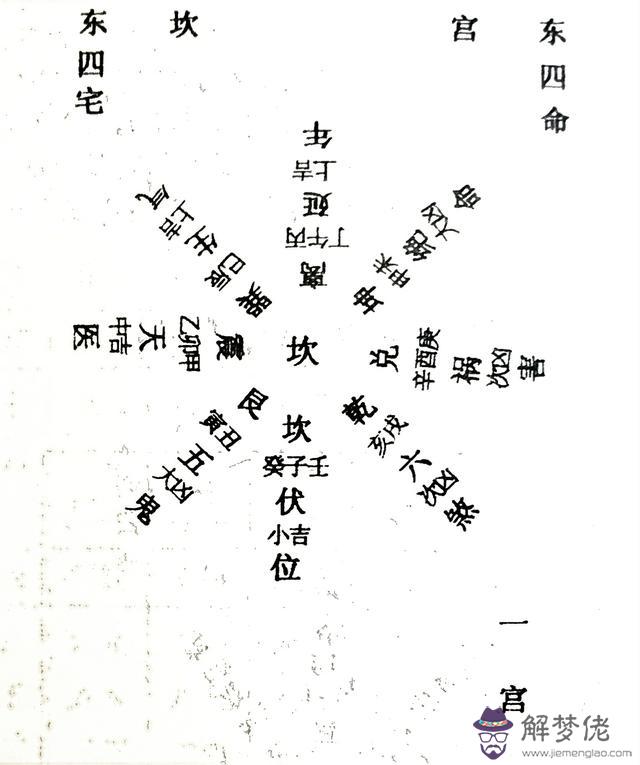 东四宅
坎
宫
东四命
离
丁午丙
延
上吉
年
坤
申未
绝
大凶
命
兑
辛酉庚
祸
次凶
害
乾
亥戌
六
次凶
煞
坎
坎
癸子壬
伏
小吉
位
艮
寅丑
五
大凶
鬼
震
乙卯甲
天
中吉
医
巽
巳辰
生
上吉
气
一宫
解梦佬
www.jiemenglao.com